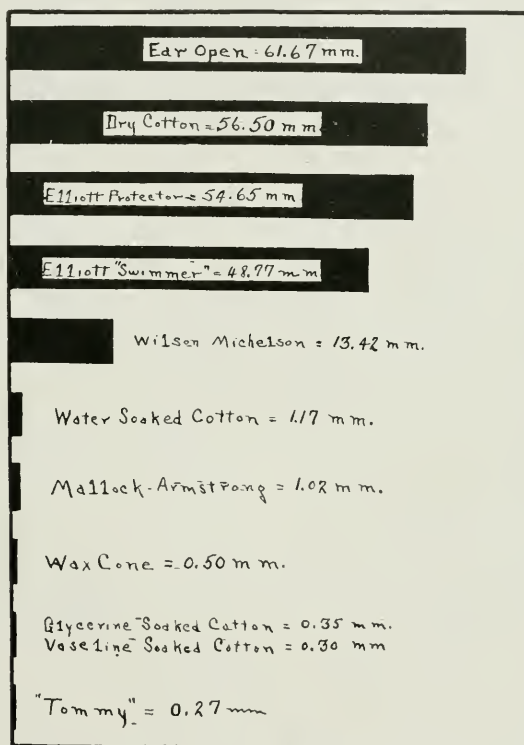 Ear Open = 61.67 mm.
Dry Cotton = 56.50 mm.
Elliott Protector = 54.65 mm
Elliott "Swimmer" = 48.77 mm
Wilson Michelson = 13.42 mm.
Water Soaked Cotton = 1.17 mm.
Mallock-Armstrong = 1.02 mm.
Wax Cone = 0.50 mm.
Glycerine Soaked Cotton = 0.35 mm.
Vaseline Soaked Cotton = 0.30 mm
"Tommy" = 0.27 mm